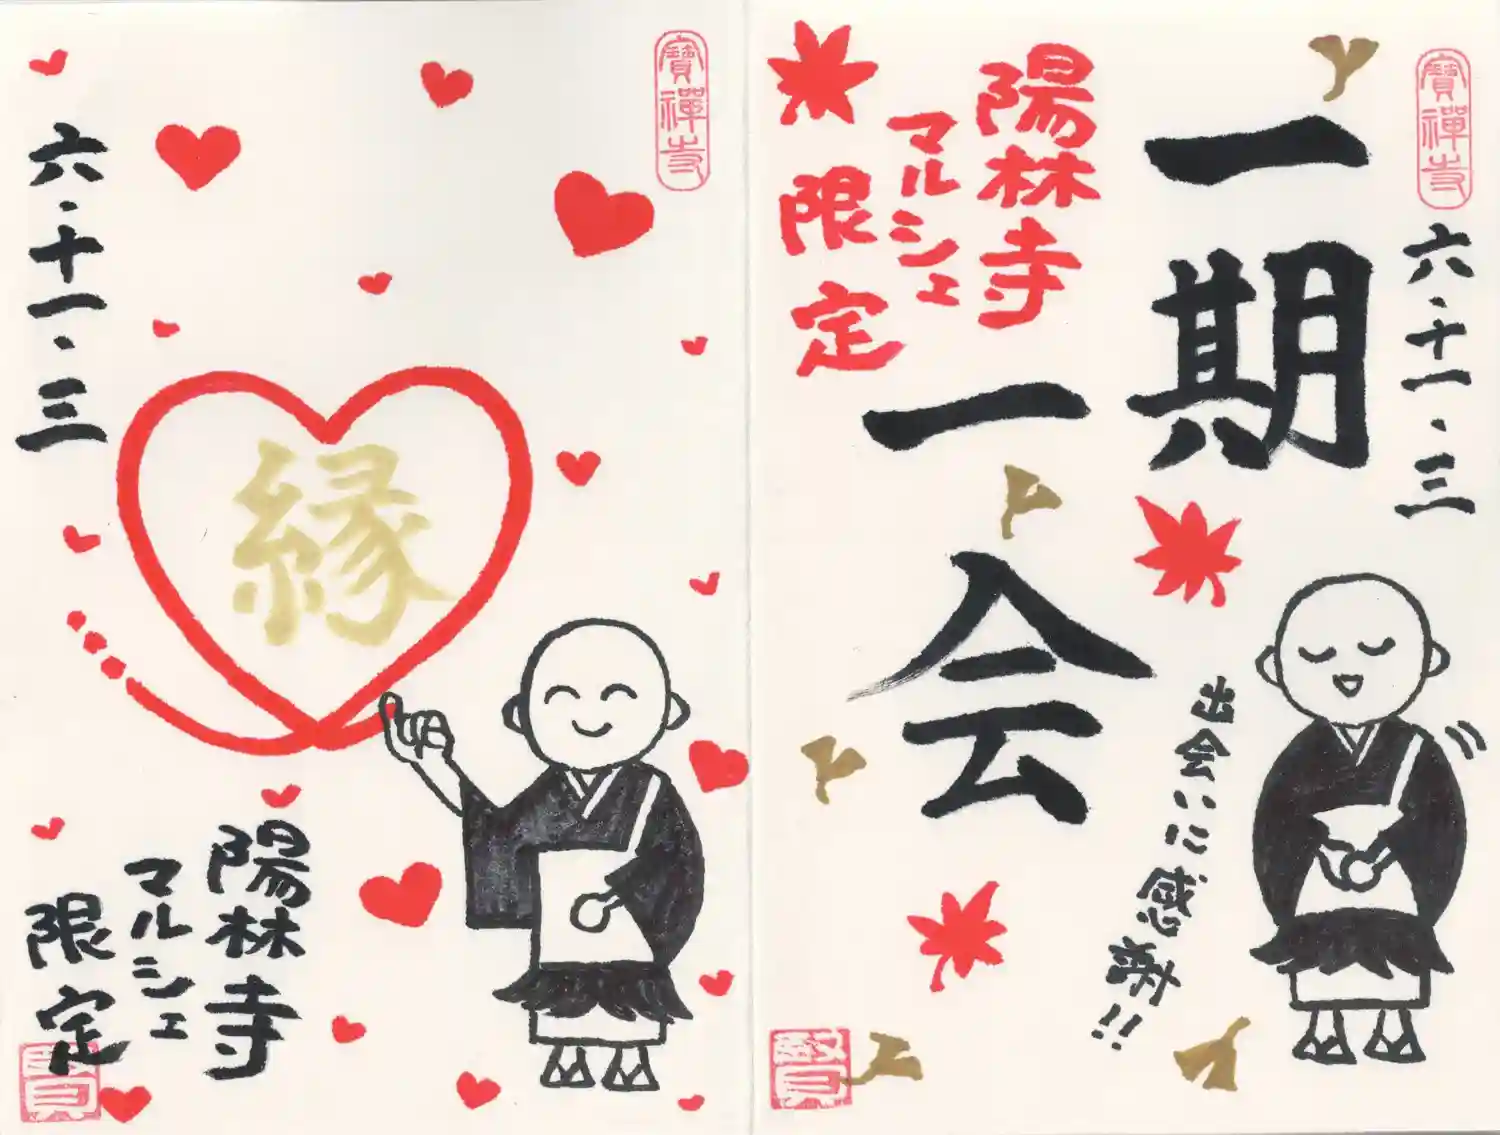 寶禪寺
六・十一・三
一期
一会
陽林寺
マルシェ
限定
出会いに感謝!!
賢
寶禪寺
六・十一・三
縁
陽林寺
マルシェ
限定
賢